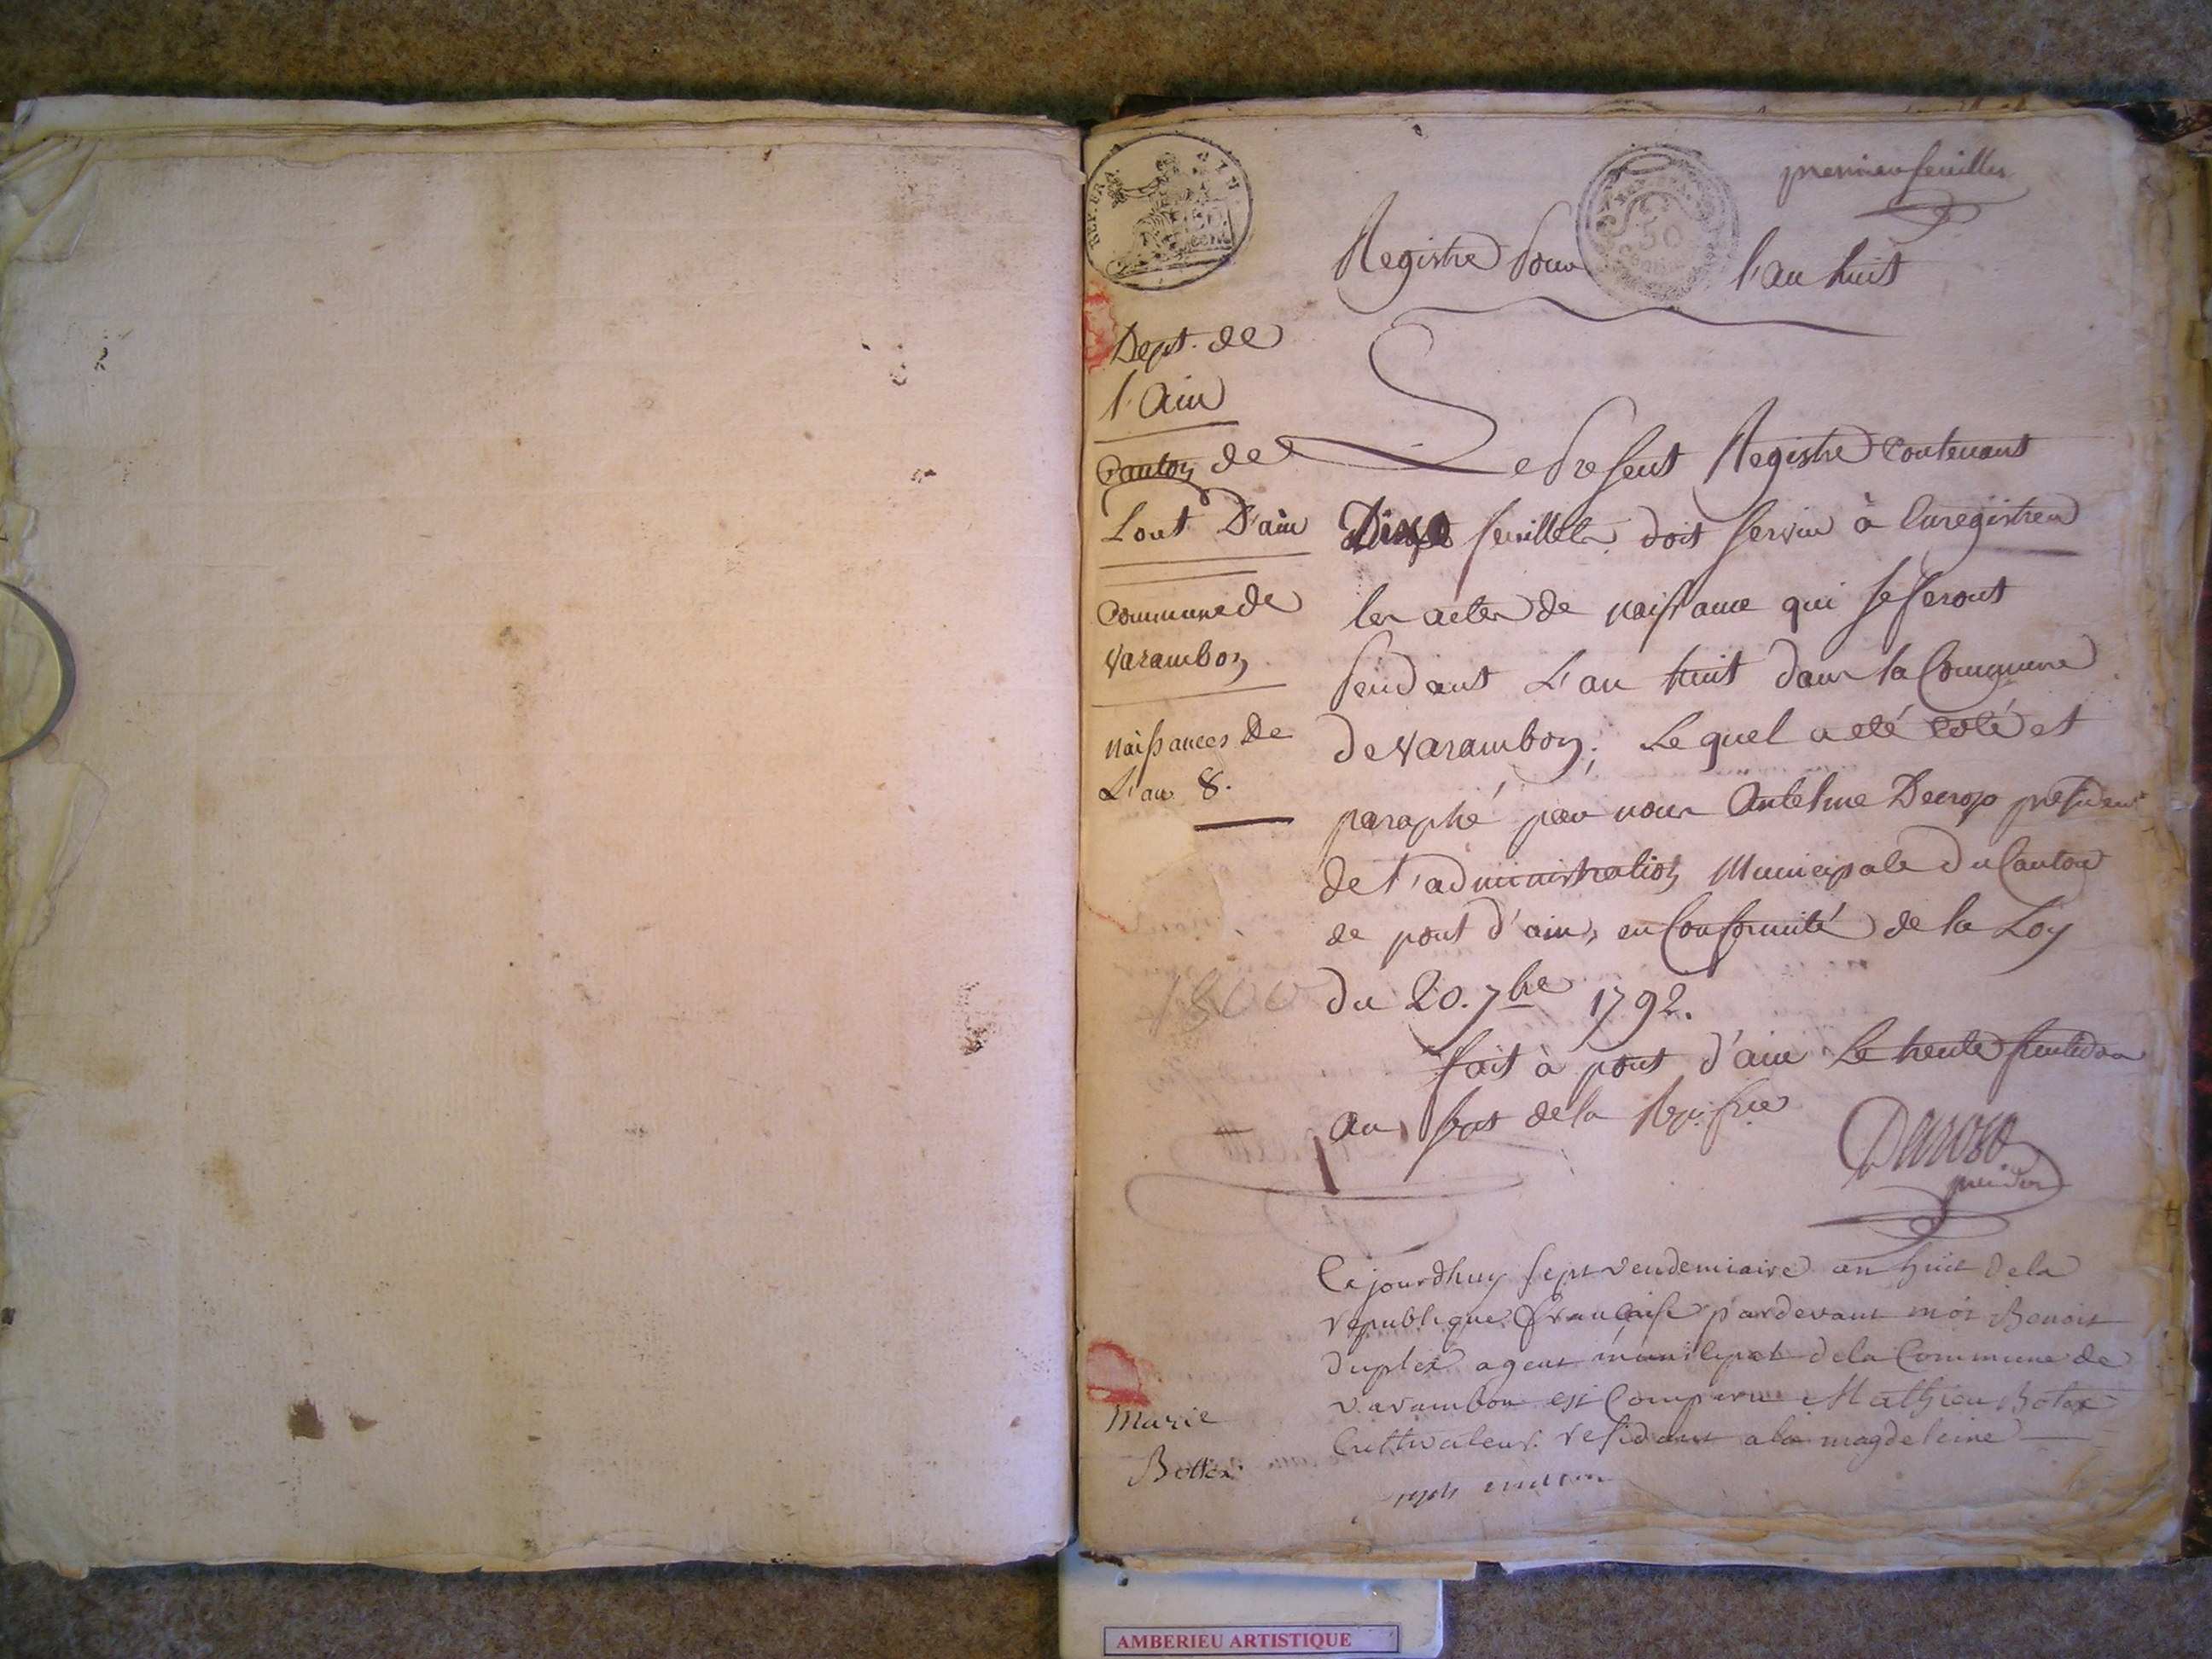 premier feuillet
Registre Pour l'an huit
Dept. de
l'Ain
Canton de
Pont D'ain
Commune de
Varambon
Naissances De
L'an 8.
Le Present Registre Contenant
feuillets doit servir à Enregistrer
les actes de naissance qui se feront
Pendant L'an huit dans la Commune
de Varambon; Le quel a eté coté et
paraphé par nous Antelme Decroso président
de l'administration Municipale du Canton
de pont d'ain, en Conformité de la Loy
du 20. 7bre 1792.
1800
fait à pont d'ain Le trente fructidor
an sept de la Rep. frse
Decroso
président
Cejourdhuy sept vendemiaire an huit dela
republique francaise pardevant moi Benoit
duplex agent municipal dela Commune de
varambon est Comparu Mathieu Botex
Cultivateur residant ala magdeleine
Marie
Bottex
REP. FRA
50
AMBERIEU ARTISTIQUE